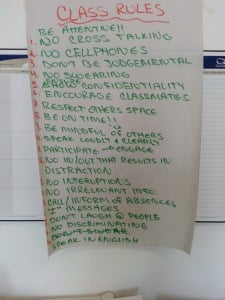 CLASS RULES
BE ATTENTIVE!!
1. NO CROSS TALKING
2. NO CELLPHONES
3. DON'T BE JUDGEMENTAL
4. NO SWEARING
5. ENSURE CONFIDENTIALITY
6. ENCOURAGE CLASSMATES
7. RESPECT OTHERS SPACE
BE ON TIME!!
BE MINDFUL OF OTHERS
SPEAK LOUDLY & CLEARLY
PARTICIPATE - ENGAGE
NO IN/OUT THAT RESULTS IN
DISTRACTION
NO INTERUPTIONS
NO IRRELEVANT INFO
CALL/INFORM OF ABSENCES
"I" MESSAGES
DON'T LAUGH @ PEOPLE
NO DISCRIMINATING
SPEAK IN ENGLISH